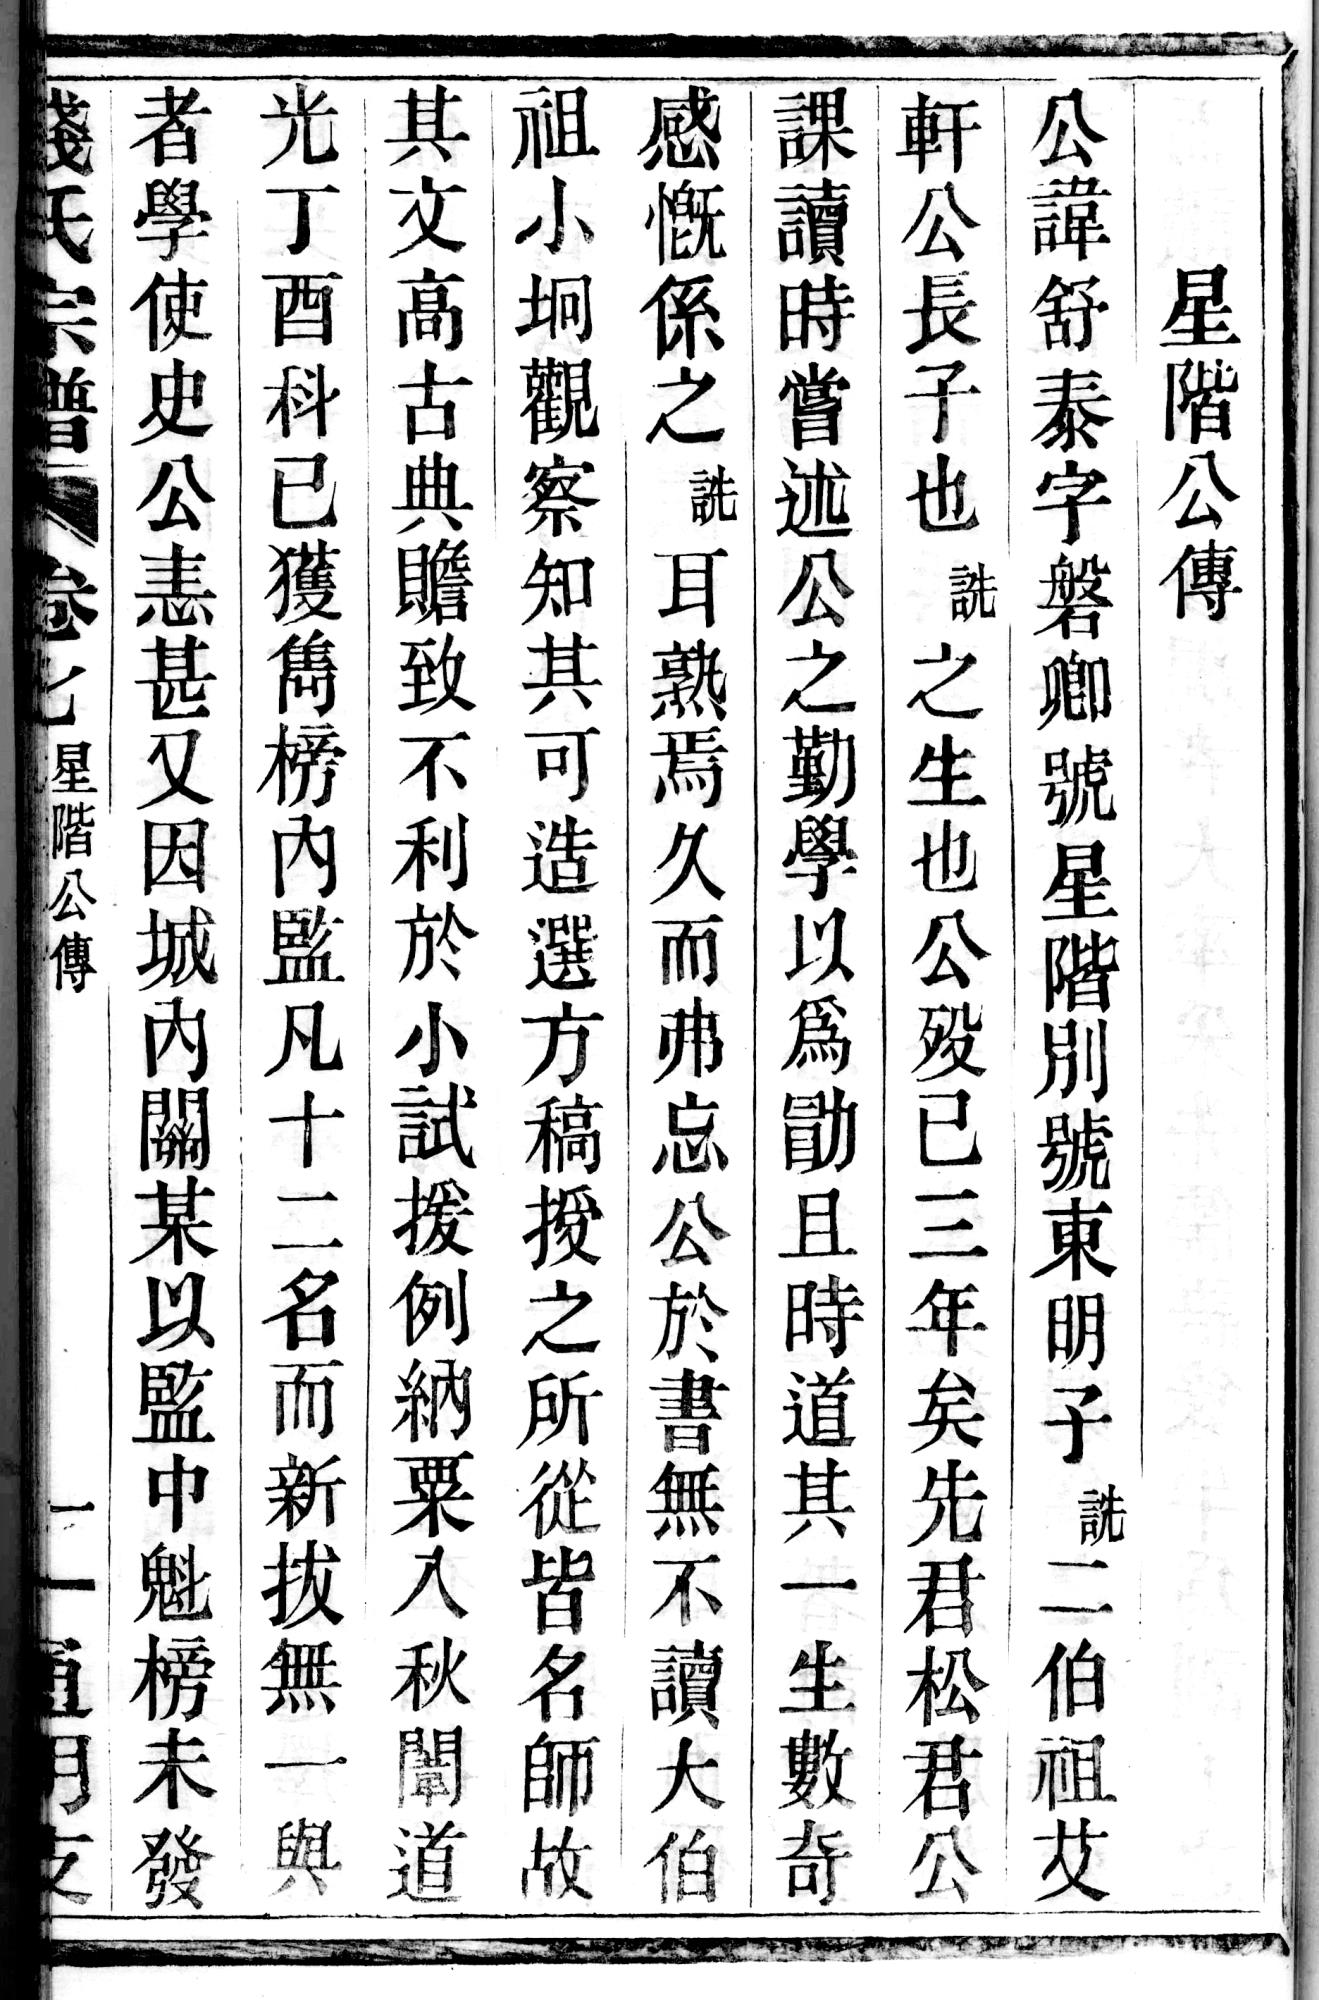 星階公傳
公諱舒泰字磐卿號星階別號東明子詵二伯祖艾
軒公長子也詵之生也公歿已三年矣先君松君公
課讀時嘗述公之勤學以爲勖且時道其一生數奇
感慨係之詵耳熟焉久而弗忘公於書無不讀大伯
祖小坰觀察知其可造選方稿授之所從皆名師故
其文高古典贍致不利於小試援例納粟入秋闈道
光丁酉科已獲雋榜內監凡十二名而新拔無一與
者學使史公恚甚又因城內關某以監中魁榜未發
錢氏宗譜 卷七 星階公傳 一 通明支